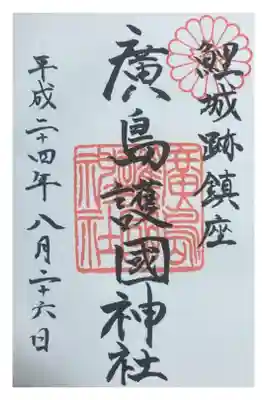 鯉城跡鎮座
廣島護國神社
平成二十四年八月二十六日
廣島護國神社